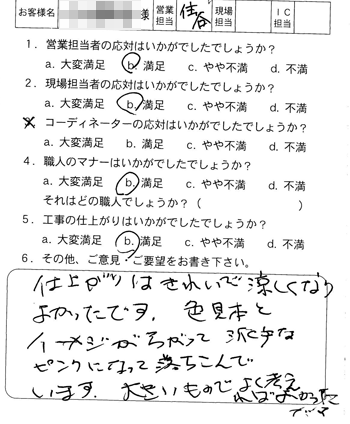 お客様名 様 営業担当 現場担当 IC担当
1．営業担当者の応対はいかがでしたでしょうか？
a. 大変満足 b. 満足 c. やや不満 d. 不満
2．現場担当者の応対はいかがでしたでしょうか？
a. 大変満足 b. 満足 c. やや不満 d. 不満
コーディネーターの応対はいかがでしたでしょうか？
a. 大変満足 b. 満足 c. やや不満 d. 不満
4．職人のマナーはいかがでしたでしょうか？
a. 大変満足 b. 満足 c. やや不満 d. 不満
それはどの職人でしょうか？（ ）
5．工事の仕上がりはいかがでしたでしょうか？
a. 大変満足 b. 満足 c. やや不満 d. 不満
6．その他、ご意見・ご要望をお書き下さい。
仕上がりはきれいで涼しくなり
よかったです. 色見本と
イメージがちがって 派手な
ピンクになって落ちこんで
います. 大きいもので よく考え
ればよかった
です